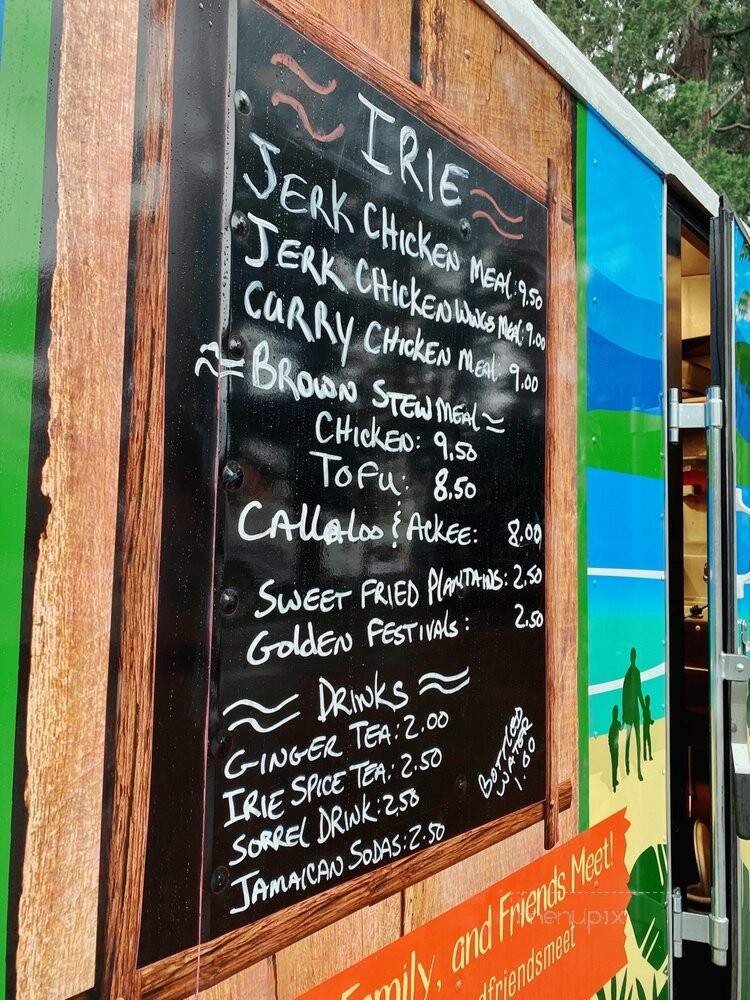 IRIE
JERK CHICKEN MEAL: 9.50
JERK CHICKEN WINGS MEAL: 9.00
CURRY CHICKEN MEAL 9.00
BROWN STEW MEAL
CHICKEN: 9.50
TOFU: 8.50
CALLALOO & ACKEE: 8.00
SWEET FRIED PLANTAINS: 2.50
GOLDEN FESTIVALS: 2.50
DRINKS
GINGER TEA: 2.00
IRIE SPICE TEA: 2.50
SORREL DRINK: 2.50
JAMAICAN SODAS: 2.50
BOTTLED
WATER
1.00
Family, and Friends Meet!
dfriendsmeet
menupix